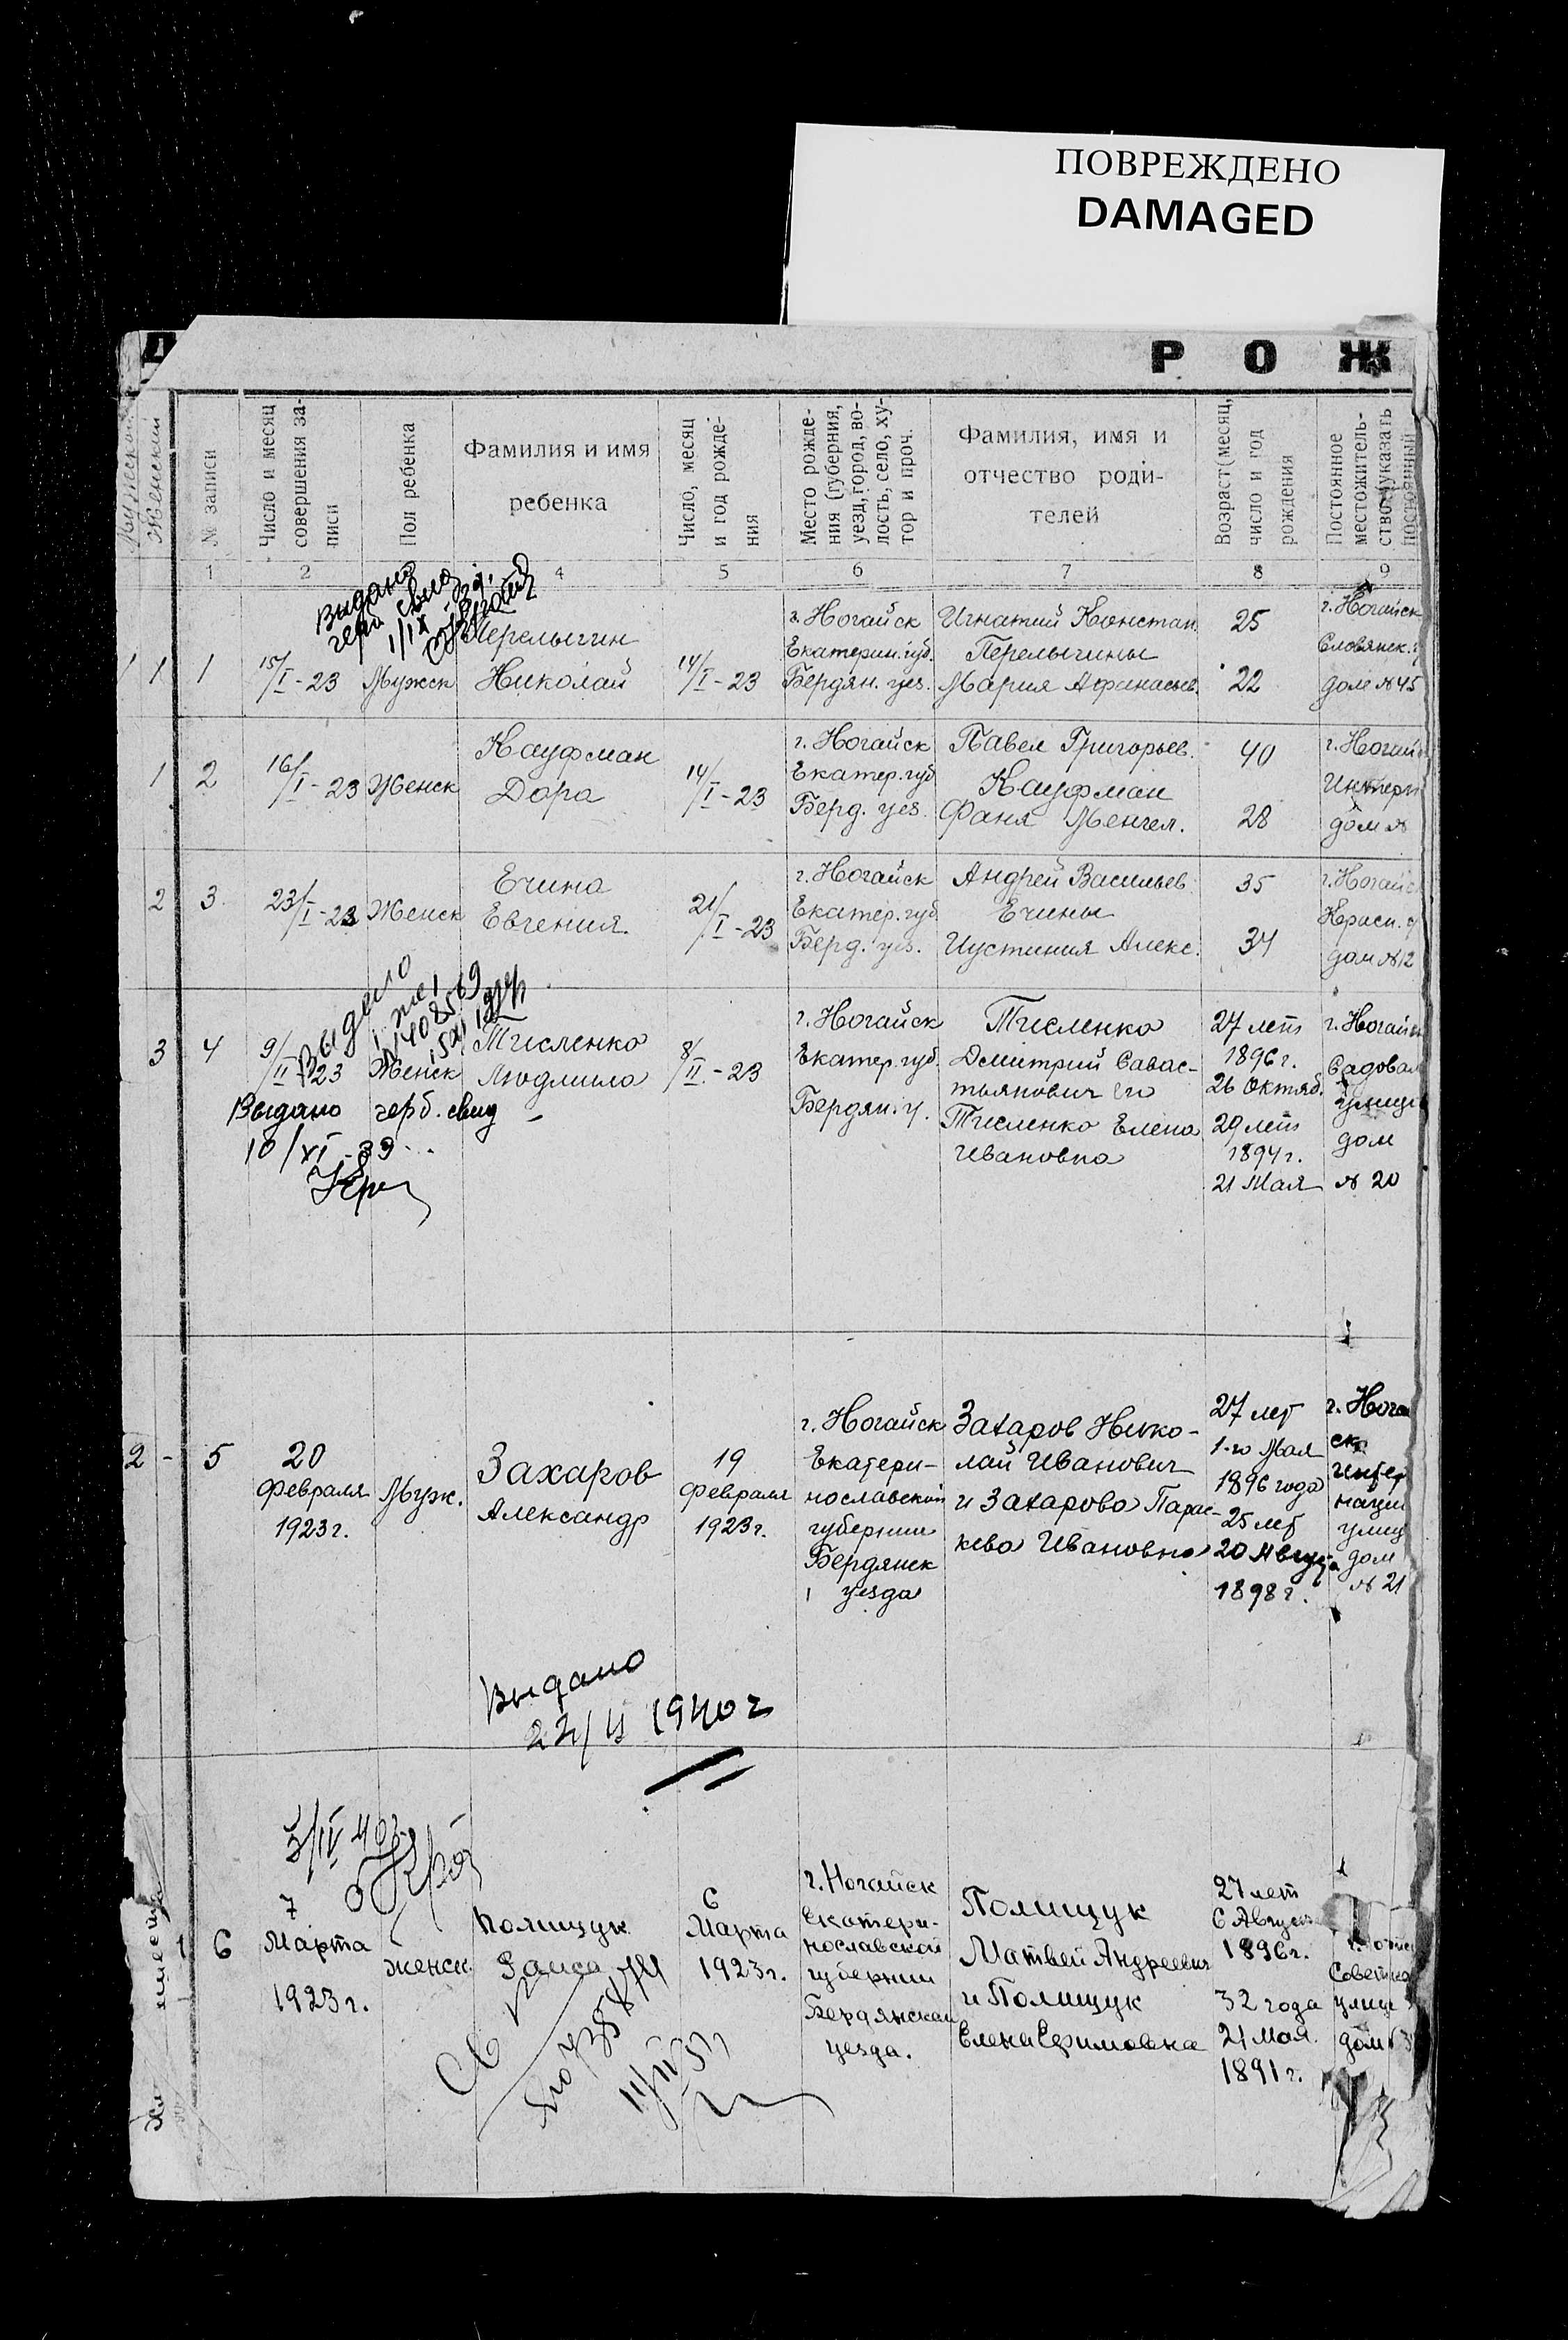 ПОВРЕЖДЕНО
DAMAGED
1
Р О Ж
Мужской
Женский
№ записи
Число и месяц
совершения за-
писи
Пол ребенка
Фамилия и имя
ребенка
Число, месяц
и год рожде-
ния
Место рожде-
ния (губерния,
уезд, город, во-
лость, село, ху-
тор и проч.
Фамилия, имя и
отчество роди-
телей
Возраст (месяц,
число и год
рождения
Постоянное
местожитель-
ство (указать
постоянный
1 2 4 5 6 7 8 9
Выдано
1 1 1
15/I-23
Мужск
Перелыгин
Николай
14/I-23
г. Ногайск
Екатерин. губ.
Бердян. уез.
Игнатий Констан.
Перелыгины
Мария Афанасьев.
25
22
г. Ногайск
Словянск.
дом №45
1 2
16/I-23
Женск
Кауфман
Дора
14/I-23
г. Ногайск
Екатер. губ
Берд. уез.
Павел Григорьев.
Кауфман
Фаня Менгел.
40
28
г. Ногай
Интерн
дом №
2 3
23/I-23
Женск
Ечина
Евгения.
21/I-23
г. Ногайск
Екатер. губ
Берд. уез.
Андрей Васильев.
Ечины
Иустиния Алекс.
35
34
г. Ногай
Красн.
дом №12
3 4
9/II-23
Женск
Тисленко
Людмила
8/II.-23
г. Ногайск
Екатер. губ.
Бердян. у.
Тисленко
Дмитрий Савас-
тьянович его
Тисленко Елена
Ивановна
27 лет
1896 г.
26 Октяб.
29 лет
1894 г.
21 Мая
г. Ногайск
Садовая
улица
дом
№ 20
Выдано герб. свид
10/XI-39
2 - 5
20
Февраля
1923 г.
Муж.
Захаров
Александр
19
Февраля
1923 г.
г. Ногайск
Екатери-
нославской
губернии
Бердянск
уезда
Захаров Нико-
лай Иванович
и Захарова Парас-
кева Ивановна
27 лет
1-го Мая
1896 года
25 лет
20 Августа
1898 г.
г. Нога
ск
Интер
наци
улиц
дом
№ 21
Выдано
22/II 1940 г
3/IV 40г.
1 6
7
Марта
1923 г.
женск.
Полищук
Раиса
6
Марта
1923 г.
г. Ногайск
Екатери-
нославской
губернии
Бердянская
уезда.
Полищук
Матвей Андреевич
и Полищук
Елена Ефимовна
27 лет
6 Август
1896 г.
32 года
21 Мая.
1891 г.
Советска
улице
дом